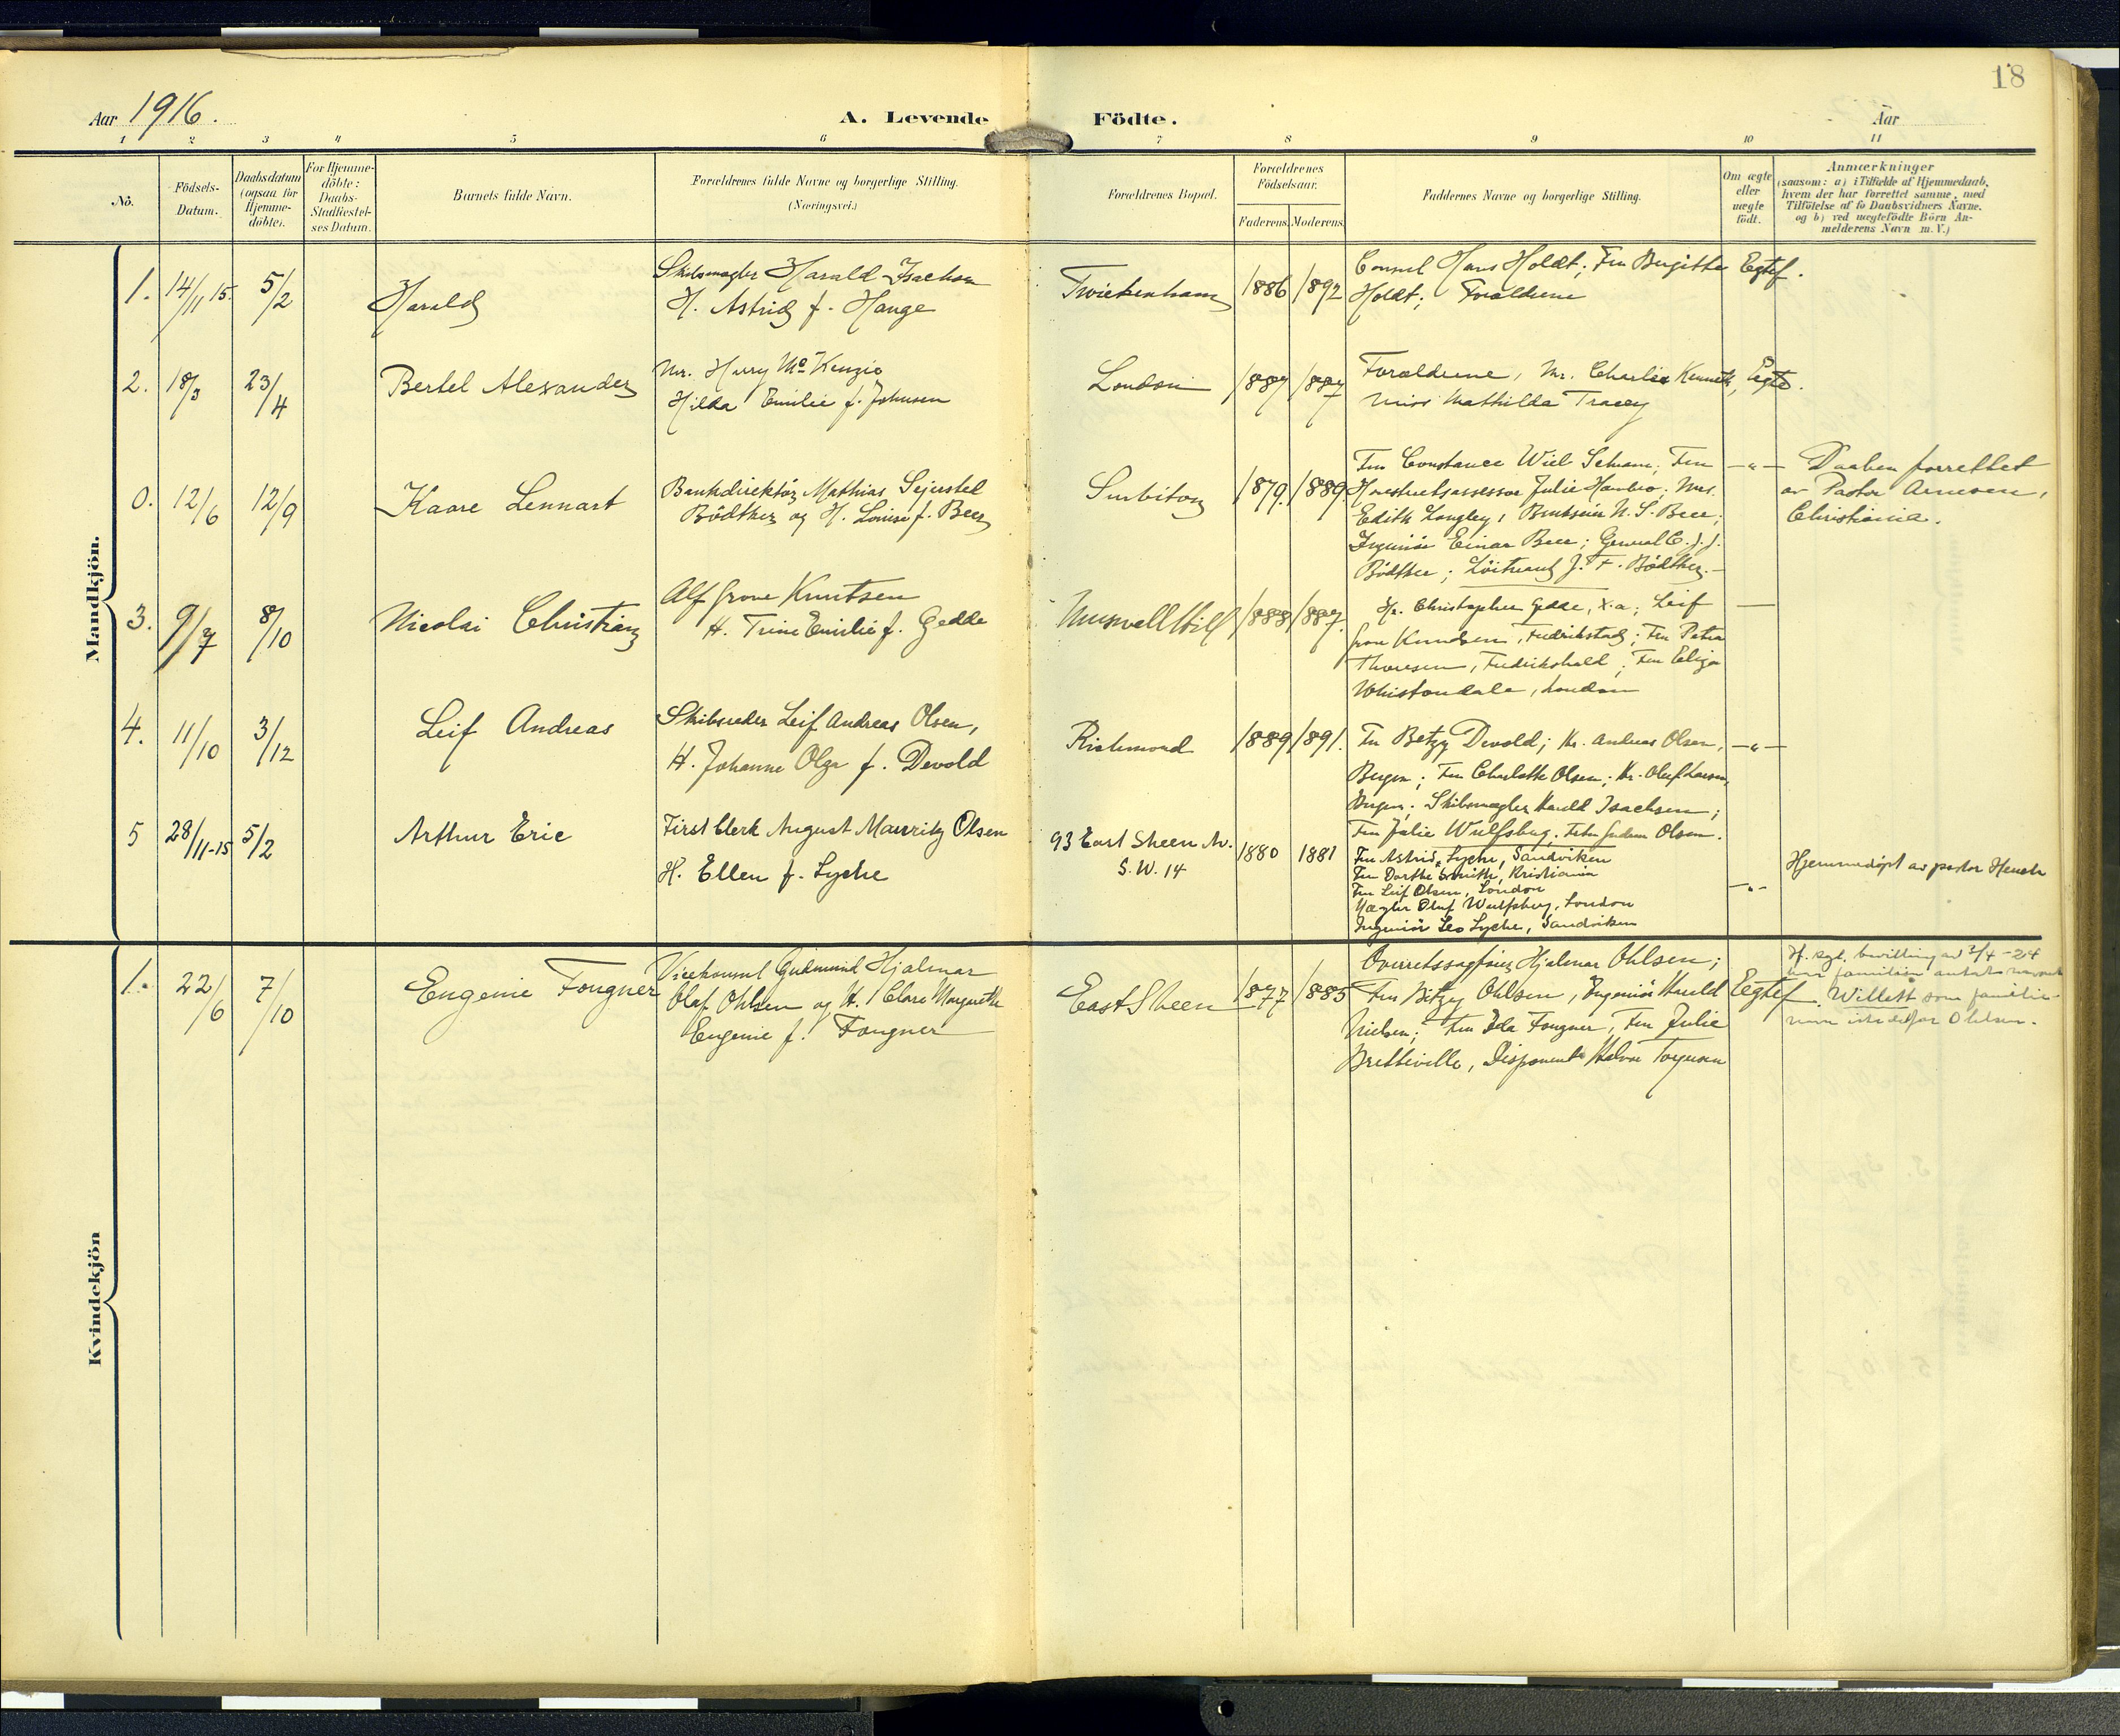 18
Aar 1916. A. Levende Födte. Aar
1 2 3 4 5 6 7 8 9 10 11
No. Födsels-Datum. Daabsdatum (ogsaa for Hjemme-döbte). For Hjemme-döbte: Daabs-Stadfæstel-ses Datum. Barnets fulde Navn. Forældrenes fulde Navne og borgerlige Stilling. (Næringsvei.) Forældrenes Bopæl. Forældrenes Födselsaar. Faderens. Moderens. Faddernes Navne og borgerlige Stilling. Om ægte eller uægte födt. Anmærkninger (saasom: a) i Tilfælde af Hjemmedaab, hvem der har forrettet samme, med Tilföielse af to Daabsvidners Navne. og b) ved uægtefödte Börn An-melderens Navn m. V.)
Mandkjön.
1. 14/11 15. 5/2 Harald Skibsmægler Harald Isachsen Twickenham 1886 1892 Consul Hans Holdt; Fru Birgitta Egtef.
H. Astrid f. Hauge Holdt; Forældrene
2. 18/3 23/4 Bertel Alexander Mr. Harry McKenzie London 1887 1887 Forældrene, Mr. Charlie Kenneth, Egte.
Hilda Emilie f. Johnsen Miss Mathilda Tracey
0. 12/6 12/9 Kaare Lennart Bankdirektör Mathias Sejersted Surbiton 1879. 1889. Fru Constance Wiel Schram; Fru —"— Daaben forrettet
Bödtker og H. Louise f. Beer Julie Hambro; Mrs. av Pastor Arnesen,
Edith Langley, N. S. Beer; Christiania.
Ingeniör Einar Beer; General C. J. J.
Bödtker; Löitnant J. F. Bödtker.
3. 9/7 8/10 Nicolai Christian Alf Grove Knutsen Muswell Hill 1888 1887. Hr. Christopher Gedde, X.a; Leif —
H. Trine Emilie f. Gedde Grove Knudsen, Fredrikstad; Fru Petra
Thoresen, Fredrikshald; Fru Eliza
Whistondale, London
4. 11/10 3/12 Leif Andreas Skibsreder Leif Andreas Olsen, Richmond 1889 1891. Fru Betzy Devold; Hr. Andreas Olsen, —"—
H. Johanne Olga f. Devold Bergen; Fru Charlotte Olsen; Hr. Oluf Larsen,
Bergen; Skibsmægler Harald Isachsen;
Fru Julie Wulfsberg, Gudrun Olsen.
5 28/11-15 5/2 Arthur Eric First Clerk August Mauritz Olsen 93 East Sheen Av. 1880 1881 Fru Astrid Lyche, Sandviken
H. Ellen f. Lyche S.W. 14 Fru Dorthe Smith, Kristiania Hjemmedöpt av pastor
Fru Leif Olsen, London —"—
Mægler Oluf Wulfsberg, London
Ingeniör Leo Lyche, Sandviken
Kvindekjön
1. 22/6 7/10 Eugenie Fougner Vicekonsul Gudmund Hjalmar East Sheen 1877 1885 Overretssagförer Hjalmar Ohlsen; Egtef. If. kgl. bevilling av 3/4-24
Olaf Ohlsen og H. Clara Margrethe Fru Betzy Ohlsen, Ingeniör Harald har familien antat navnet
Eugenie f. Fougner Nielsen; Fru Ida Fougner, Fru Julie Willett som familie-
Bretteville, Disponent Halvor Torgersen navn istedetfor Ohlsen.